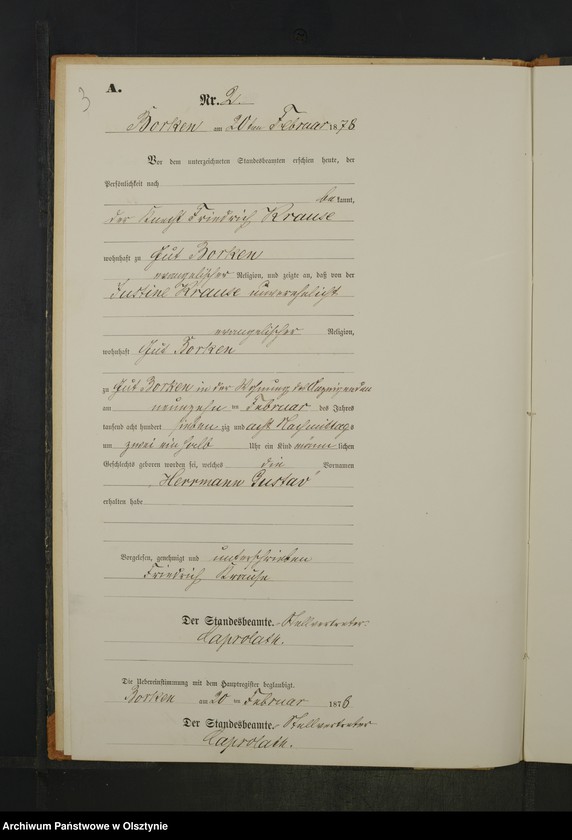 3
A.
Nr. 2.
Borken am 20ten Februar 1878
Vor dem unterzeichneten Standesbeamten erschien heute, der
Persönlichkeit nach
bekannt,
der Knecht Friedrich Krause
wohnhaft zu Gut Borken
evangelischer Religion, und zeigte an, daß von der
Justine Krause unverehelicht
evangelischer Religion,
wohnhaft Gut Borken
zu Gut Borken in der Wohnung des Anzeigenden
am neunzehn ten Februar des Jahres
tausend acht hundert siebenzig und acht Nachmittags
um zwei ein halb Uhr ein Kind männlichen
Geschlechts geboren worden sei, welches die Vornamen
Herrmann Gustav
erhalten habe
Vorgelesen, genehmigt und unterschrieben
Friedrich Krause
Der Standesbeamte. Stellvertreter:
Caprolath.
Die Uebereinstimmung mit dem Hauptregister beglaubigt.
Borken am 20 ten Februar 1878
Der Standesbeamte. Stellvertreter
Caprolath.
Archiwum Państwowe w Olsztynie